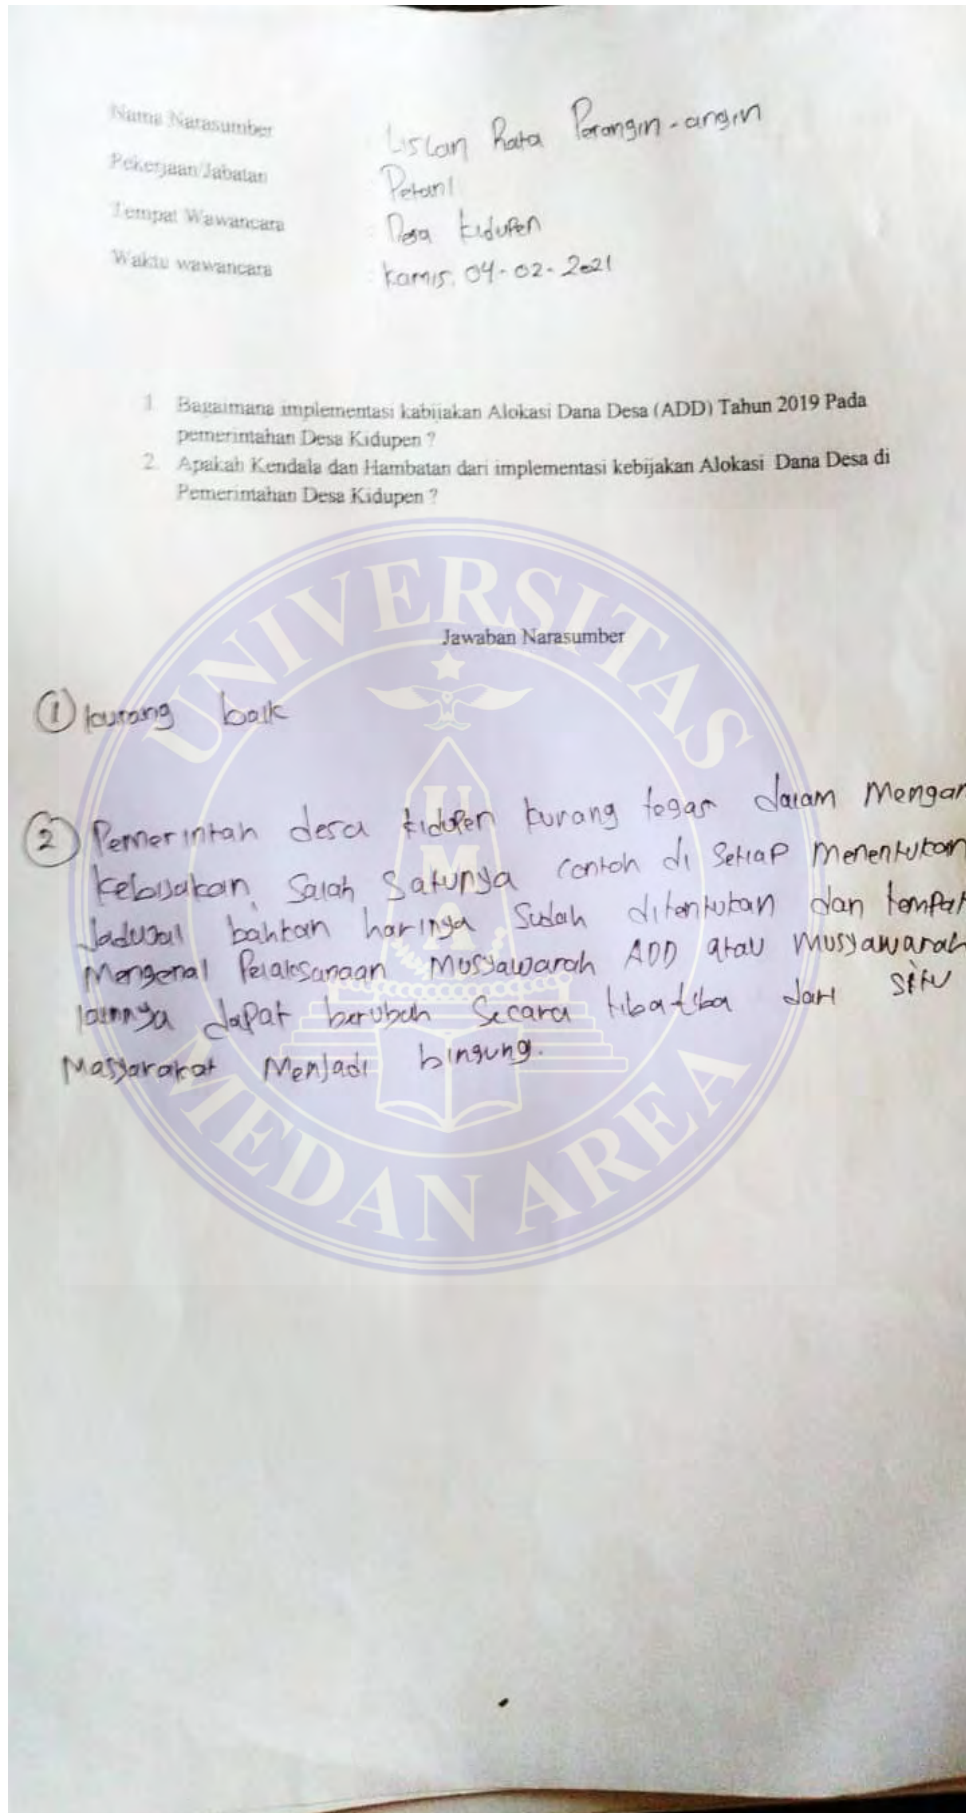 Nama Narasumber : Lislan Rata Perangin-angin
Pekerjaan/Jabatan : Petani
Tempat Wawancara : Desa Kidupen
Waktu wawancara : Kamis, 04-02-2021
1. Bagaimana implementasi kabijakan Alokasi Dana Desa (ADD) Tahun 2019 Pada
pemerintahan Desa Kidupen ?
2. Apakah Kendala dan Hambatan dari implementasi kebijakan Alokasi Dana Desa di
Pemerintahan Desa Kidupen ?
Jawaban Narasumber
1 kurang baik
2 Pemerintah desa kidupen kurang tegas dalam Mengam
kebijakan, Salah Satunya contoh di Setiap Menentukan
Jaduwal bahkan harinya Sudah ditentukan dan tempat
Mengenai Pelaksanaan Musyawarah ADD atau Musyawarah
lainnya dapat berubah Secara tiba-tiba dari situ
Masyarakat Menjadi bingung.
UNIVERSITAS
UMA
MEDAN AREA